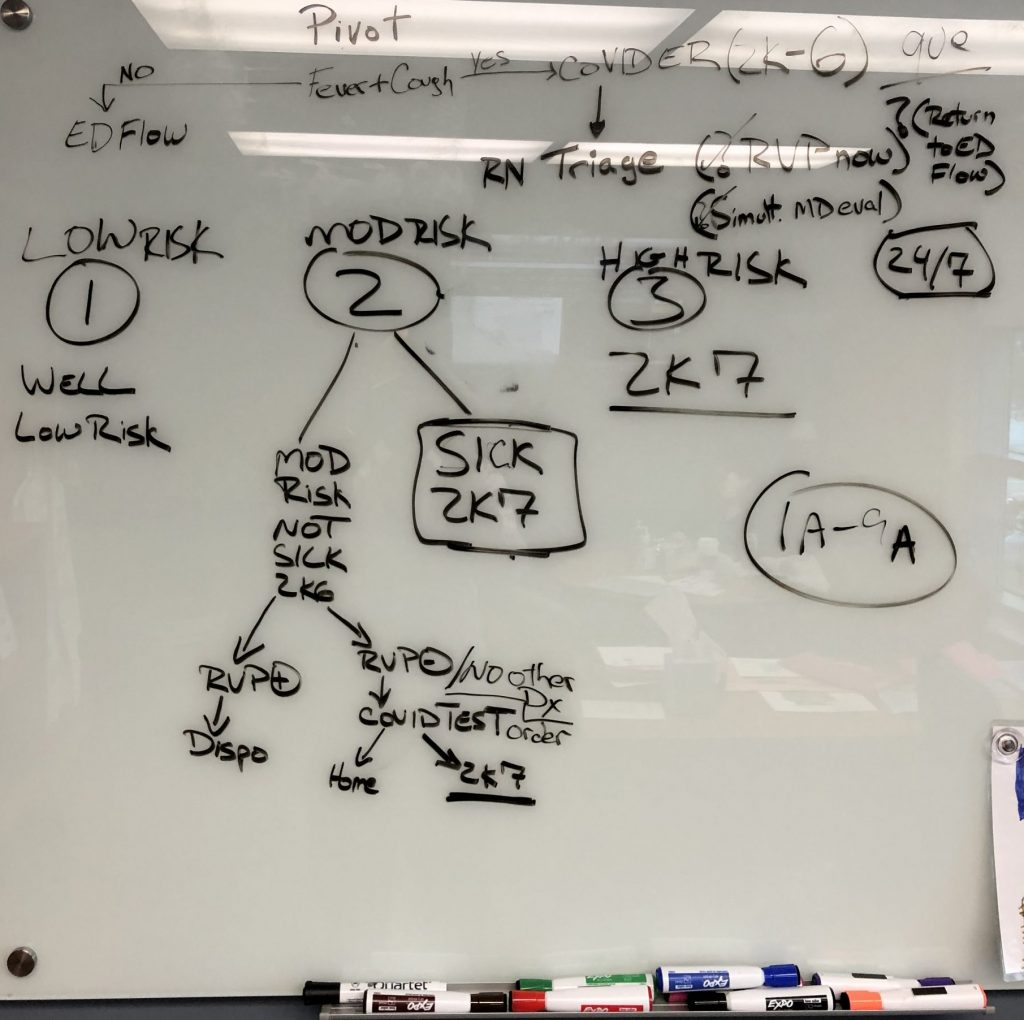 Pivot
NO
Fever+Cough
yes
COVIDER (2K-6)
que
ED Flow
RN Triage (? RVP now)
? (Return
to ED
Flow)
(? Simult. MD eval)
LOW RISK
1
WELL
Low Risk
MOD RISK
2
HIGH RISK
3
2K7
24/7
MOD
Risk
NOT
SICK
2K6
SICK
2K7
1A-9A
RVP⊕
Dispo
RVP⊖/NO other
Dx
COVID TEST order
Home
2K7
Quartet
EXPO
EXPO
EXPO